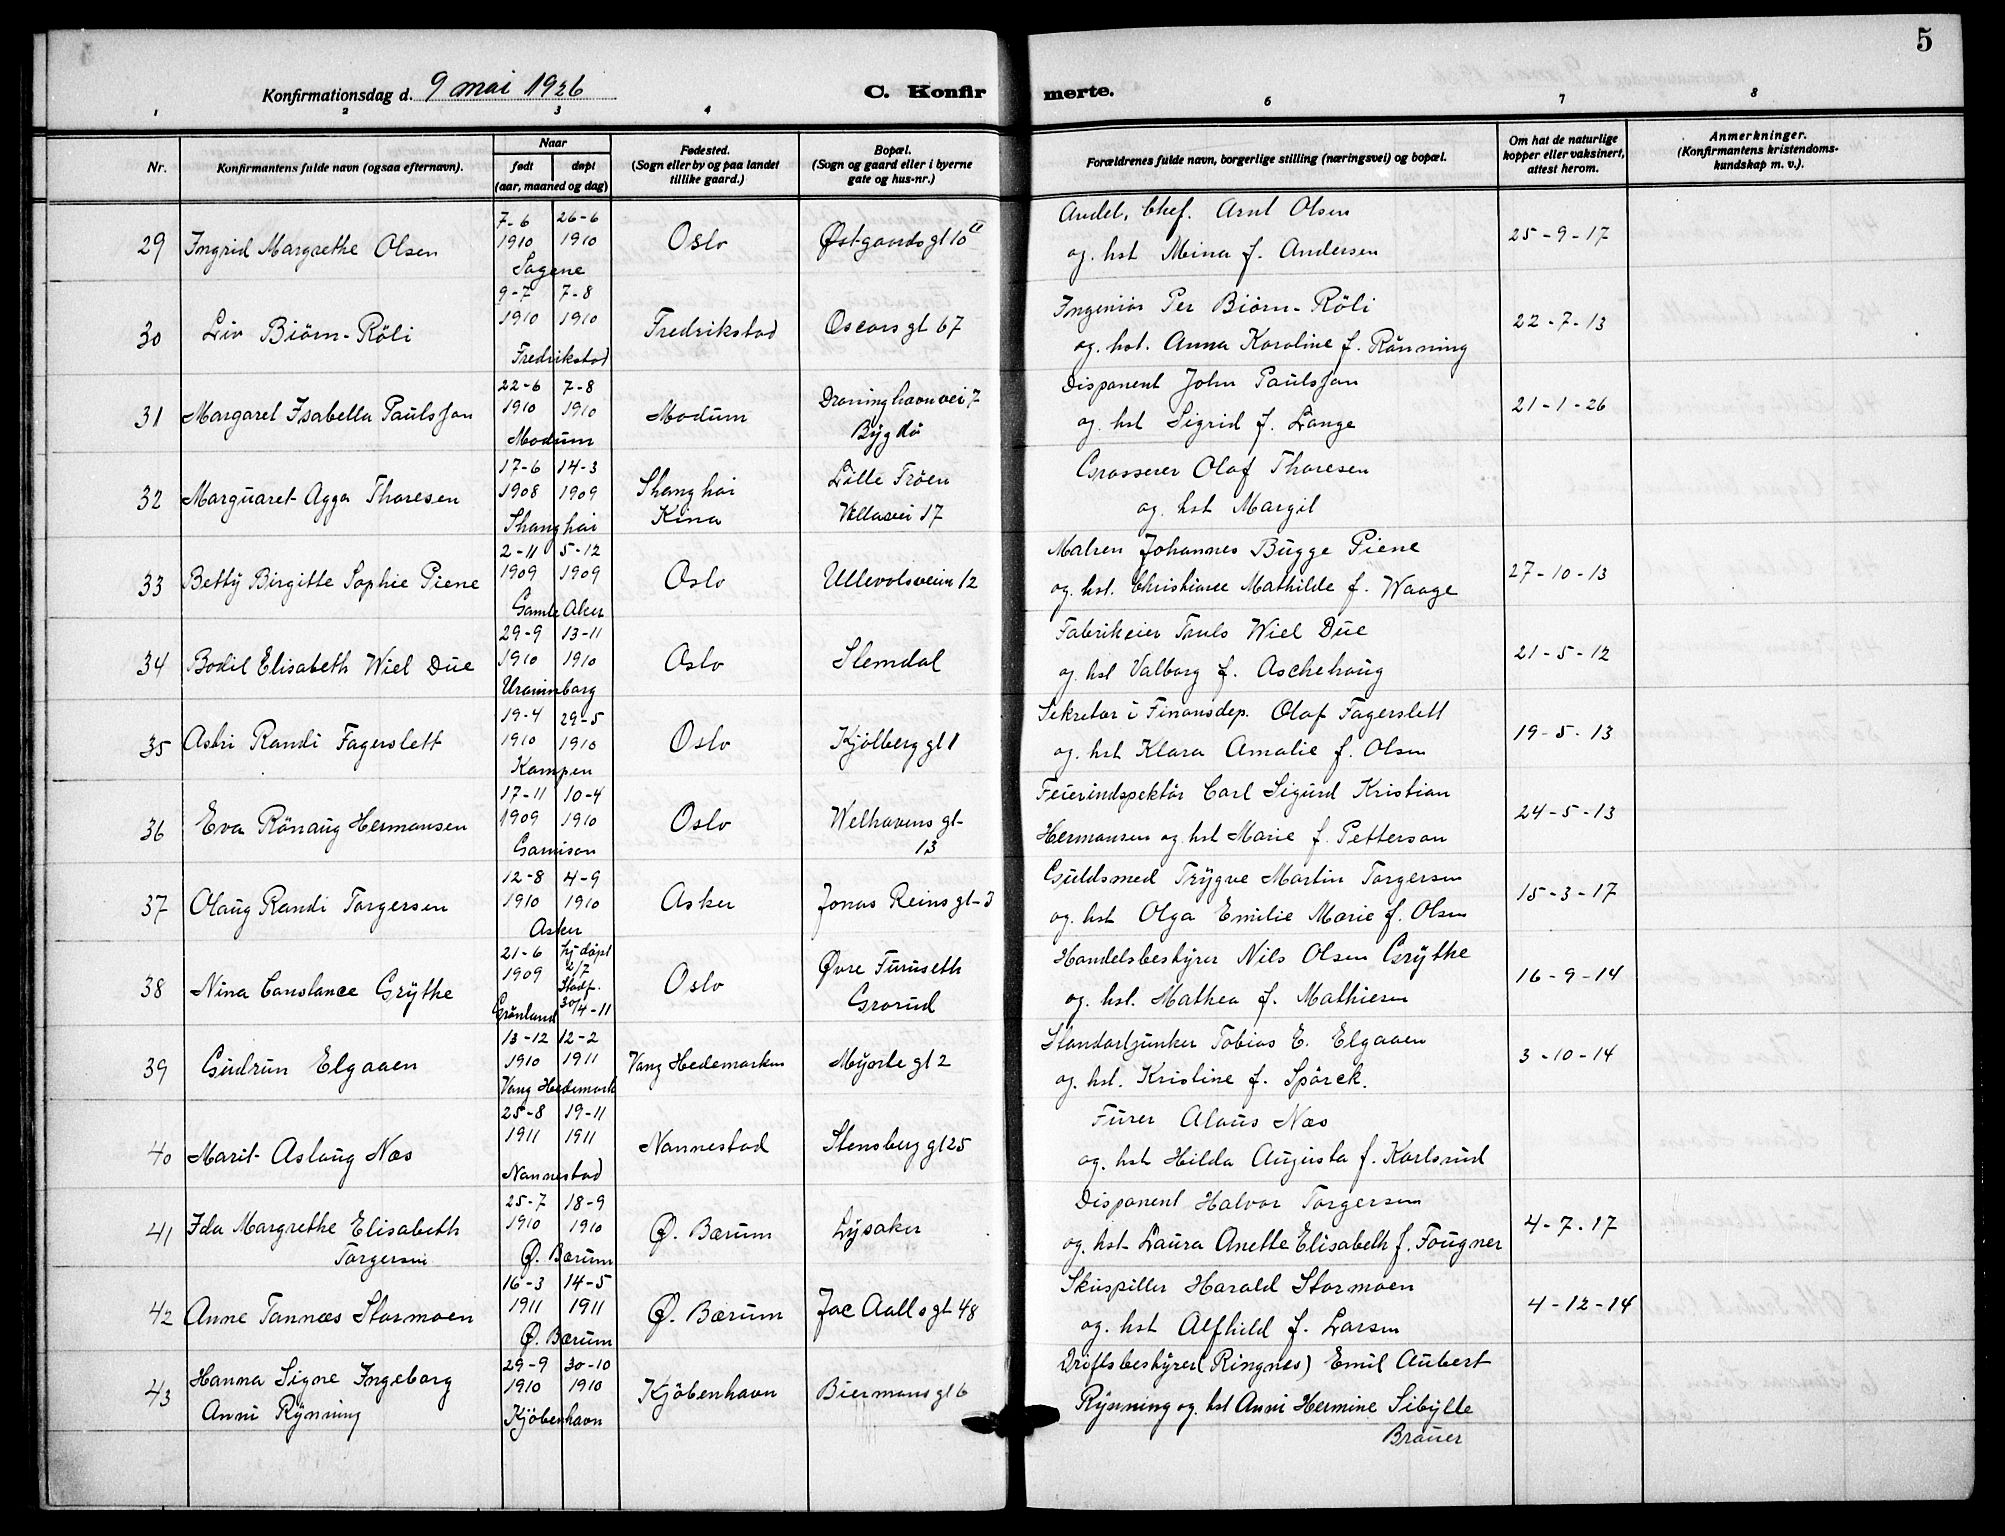 5
Konfirmationsdag d. 9 mai 1926
C. Konfirmerte.
1 2 3 4 6 7 8
Nr.
Konfirmantens fulde navn (ogsaa efternavn).
Naar
født døpt
(aar, maaned og dag)
Fødested.
(Sogn eller by og paa landet
tillike gaard.)
Bopæl.
(Sogn og gaard eller i byerne
gate og hus-nr.)
Forældrenes fulde navn, borgerlige stilling (næringsvei) og bopæl.
Om hat de naturlige
kopper eller vaksinert,
attest herom.
Anmerkninger.
(Konfirmantens kristendoms-
kundskap m. v.).
29 Ingrid Margrethe Olsen
7-6 26-6
1910 1910
Sagene
Oslo
Østgaards gt 10
Avdel. chef. Arnt Olsen
og. hst Mina f. Andersen
25-9-17
30 Liv Biörn-Röli
9-7 7-8
1910 1910
Fredrikstad
Fredrikstad
Oscars gt 67
Ingeniör Per Biörn-Röli
og. hst. Anna Karoline f. Rönning
22-7-13
31 Margaret Isabella Paulsson
22-6 7-8
1910 1910
Modum
Modum
Droninghavnvei 7
Bygdö
Disponent John Paulsson
og. hst Sigrid f. Lange
21-1-26
32 Marguaret Agga Thoresen
17-6 14-3
1908 1909
Shanghai
Shanghai
Kina
Lille Fröen
Villavei 17
Grosserer Olaf Thoresen
og. hst Margit
33 Betty Birgitte Sophie Piene
2-11 5-12
1909 1909
Gamle Aker
Oslo
Ullevolsveien 12
Malren Johannes Bugge Piene
og. hst. Christiane Mathilde f. Waage
27-10-13
34 Bodil Elisabeth Wiel Due
29-9 13-11
1910 1910
Uranienborg
Oslo
Slemdal
Fabrikeier Truls Wiel Due
og. hst Valborg f. Aschehoug
21-5-12
35 Astri Randi Fagerslett
19-4 29-5
1910 1910
Kampen
Oslo
Kjölberg gt 1
Sekretær i Finansdep. Olaf Fagerslett
og. hst Klara Amalie f. Olsen
19-5-13
36 Eva Rönaug Hermansen
17-11 10-4
1909 1910
Garnison
Oslo
Welhavens gt-
13
Feierindspektör Carl Sigurd Kristian
Hermansen og hst Marie f. Petterson
24-5-13
37 Olaug Randi Torgersen
12-8 4-9
1910 1910
Asker
Asker
Jonas Reins gt-3
Guldsmed Trygve Martin Torgersen
og. hst Olga Emilie Marie f. Olsen
15-3-17
38 Nina Constance Grythe
21-6 hj döpt
1909 2/7
Stadf.
Grönland 30/4-11
Oslo
Øvre Furuseth
Grorud
Handelsbestyrer Nils Olsen Grythe
og. hst. Mathea f. Mathiesen
16-9-14
39 Gudrun Elgaaen
13-12 12-2
1910 1911
Vang Hedemark
Vang Hedemarken
Myrsle gt 2
Standartjunker Tobias E. Elgaaen
og. hst. Kristine f. Spörck.
3-10-14
40 Marit Aslaug Næs
25-8 19-11
1911 1911
Nannestad
Nannestad
Stensberg gt 25
Furer Alaus Næs
og. hst Hilda Augusta f. Karlsrud
41 Ida Margrethe Elisabeth
Torgersen
25-7 18-9
1910 1910
Ø. Bærum
Ø. Bærum
Lysaker
Disponent Halvor Torgersen
og. hst Laura Anette Elisabeth f. Fougner
4-7-17
42 Anne Tannæs Stormoen
16-3 14-5
1911 1911
Ø. Bærum
Ø. Bærum
Jac Aalls gt 48
Skuspiller Harald Stormoen
og. hst Alfhild f. Larsen
4-12-14
43 Hanna Signe Ingeborg
Anni Rynning
29-9 30-10
1910 1910
Kjöbenhavn
Kjöbenhavn
Biermans gt 6
Driftsbestyrer (Ringnes) Emil Aubert
Rynning og. hst Anni Hermine Sibylle
Brauer